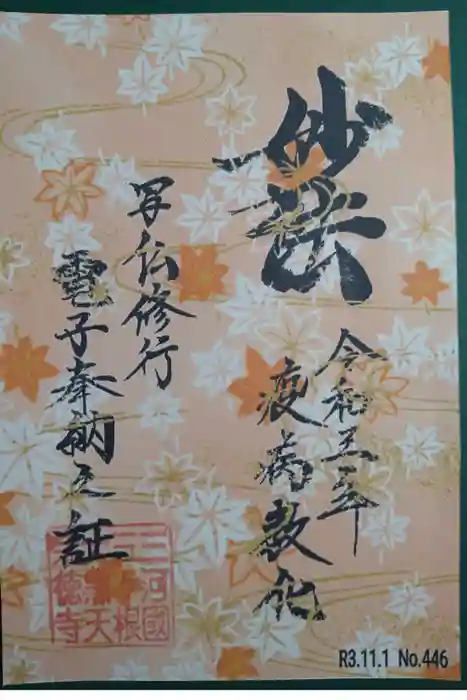 妙法
令和三年
疫病教化
写仏修行
電子奉納之証
三河國
根天
徳寺
R3.11.1 No.446